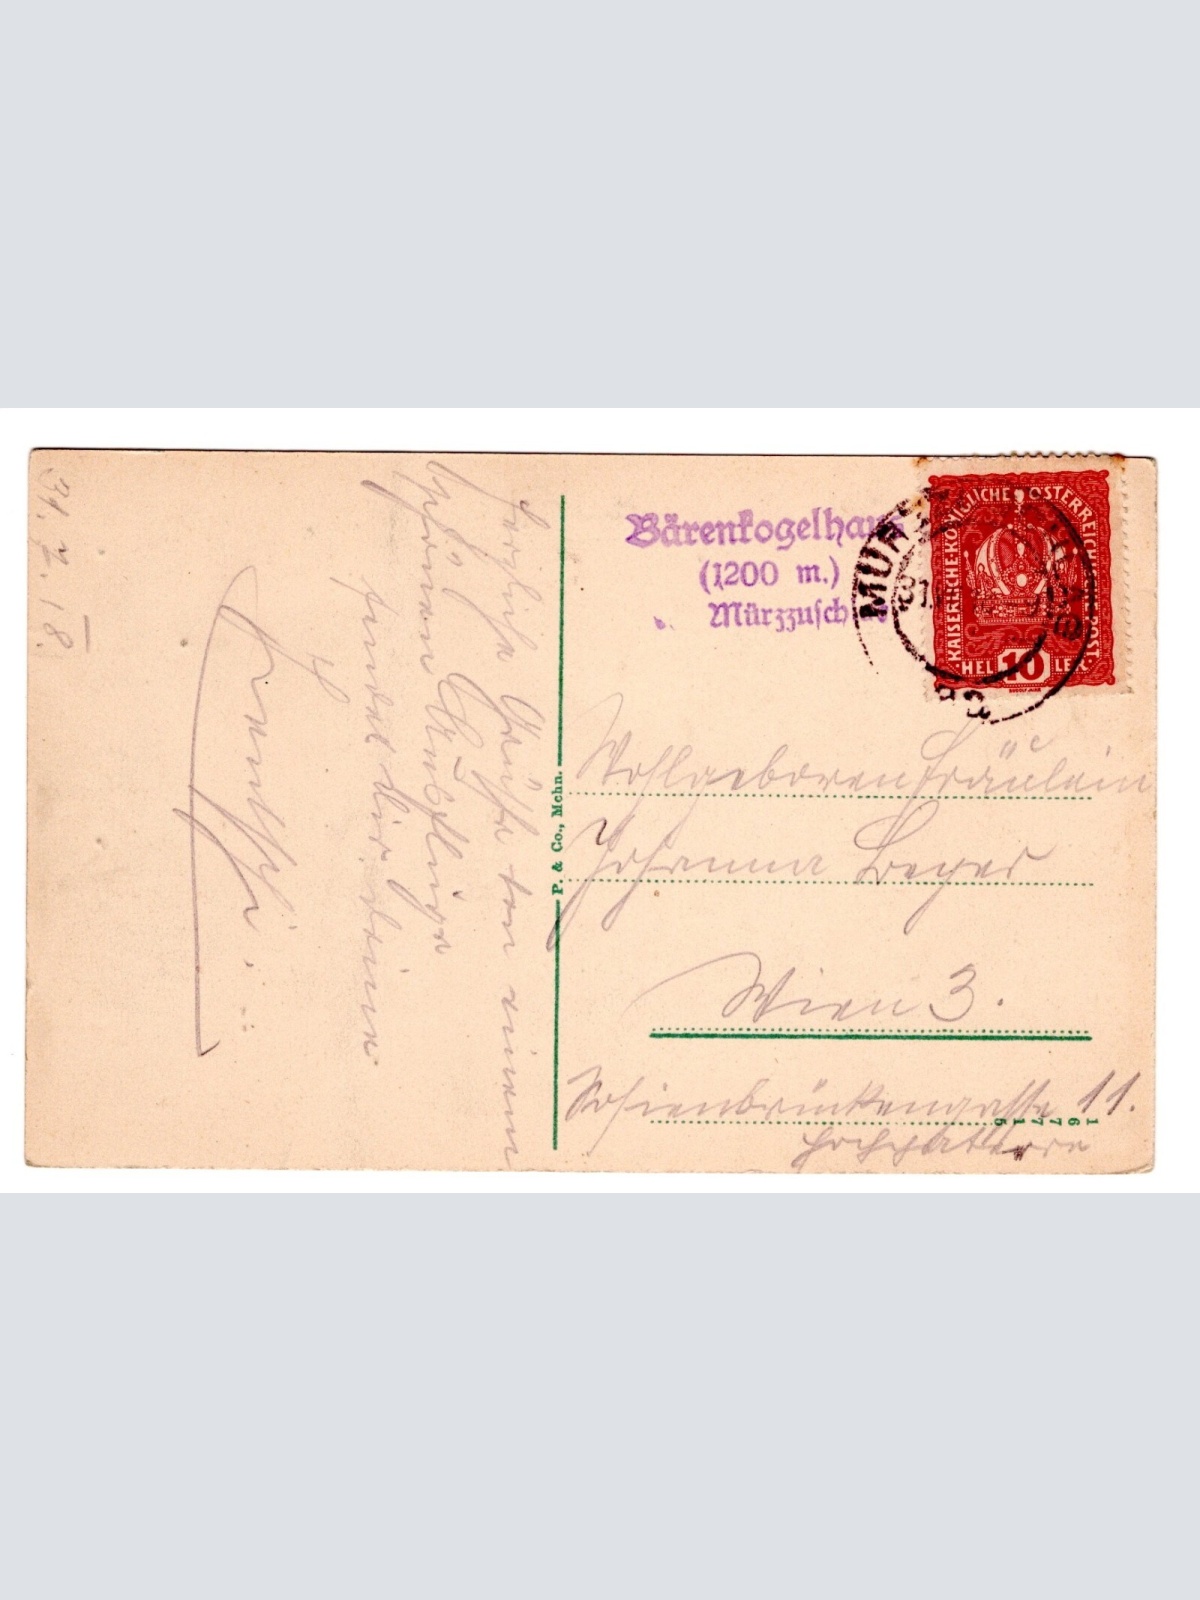 31. 3. 18.
Herzliche Grüße von einem
schönen Ausfluge
sendet dir deine
Bärenkogelhaus
(1200 m.)
Mürzzuschlag
KAISERLICHE·KÖNIGLICHE ÖSTERREICHISCHE POST·
·HEL 10 LER·
MÜRZZUSCHLAG
P. & Co., Mchn.
Wohlgeboren Fräulein
Johanna Beger
Wien 3.
Sofienbrückengasse 11.
Hochparterre
16 7 7 1 5